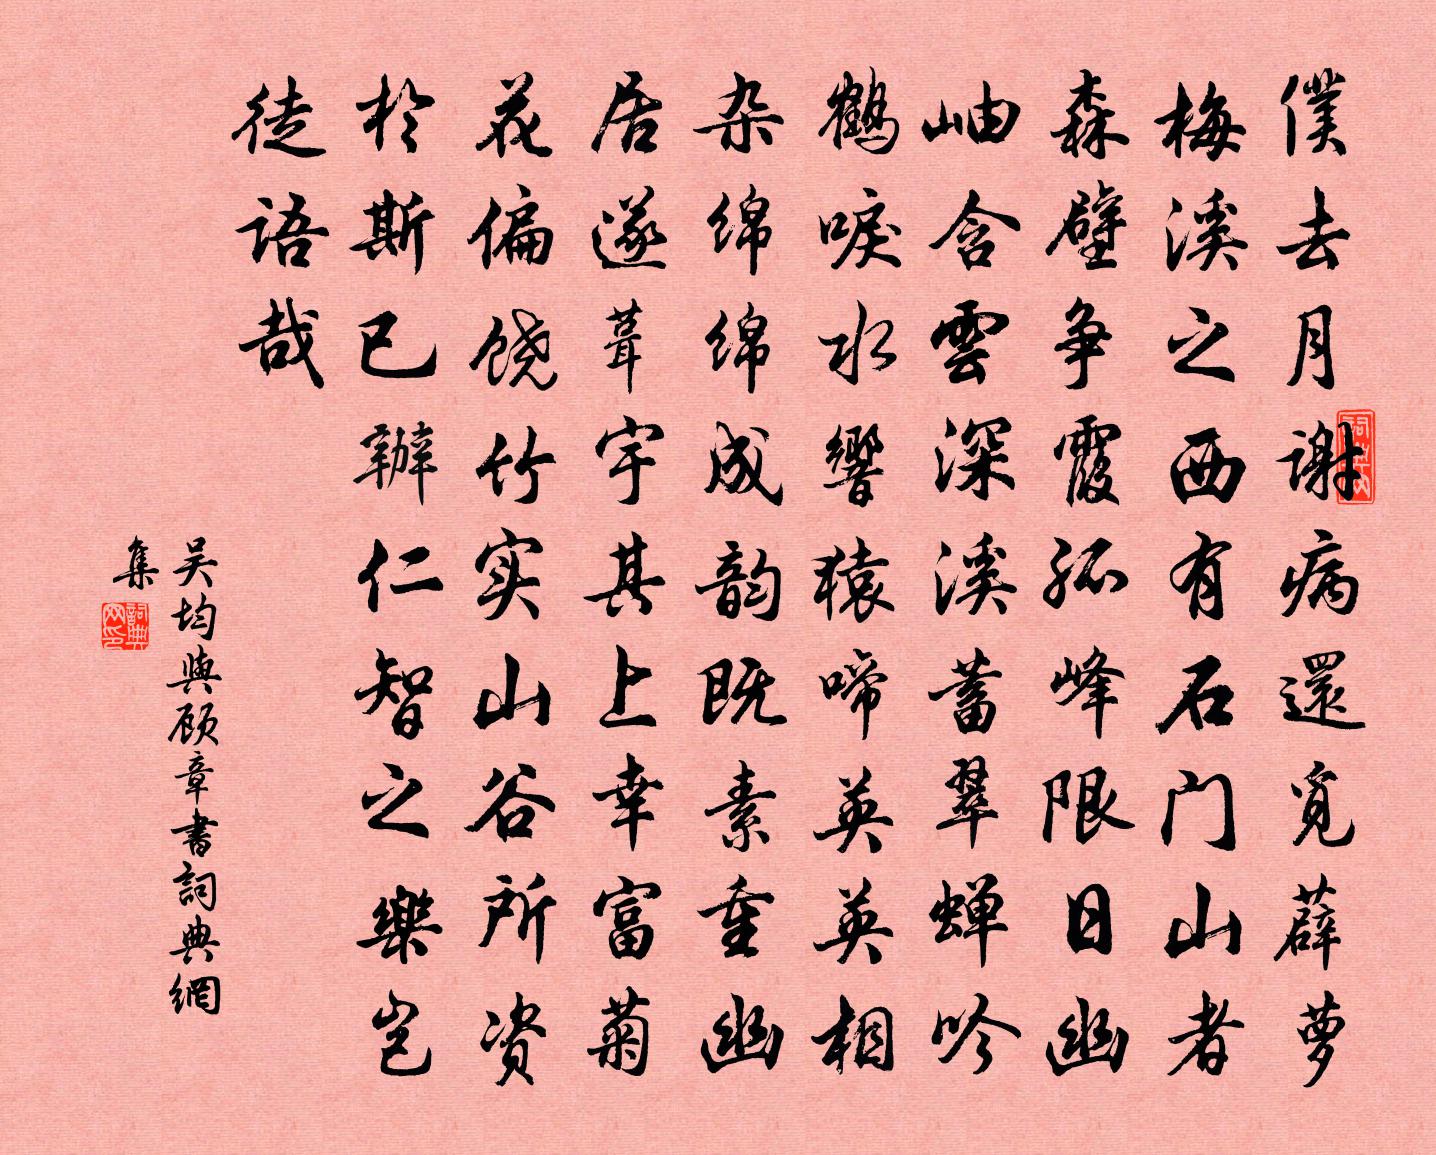 僕去月谢病還觅薜萝
梅溪之西有石门山者
森壁争霞孤峰限日幽
岫含雲深溪蓄翠蝉吟
鹤唳水響猿啼英英相
杂绵绵成韵既素重幽
居遂葺宇其上幸富菊
花偏饶竹实山谷所资
於斯已辦仁智之樂岂
徒语哉
吴均與顾章書詞典網
集